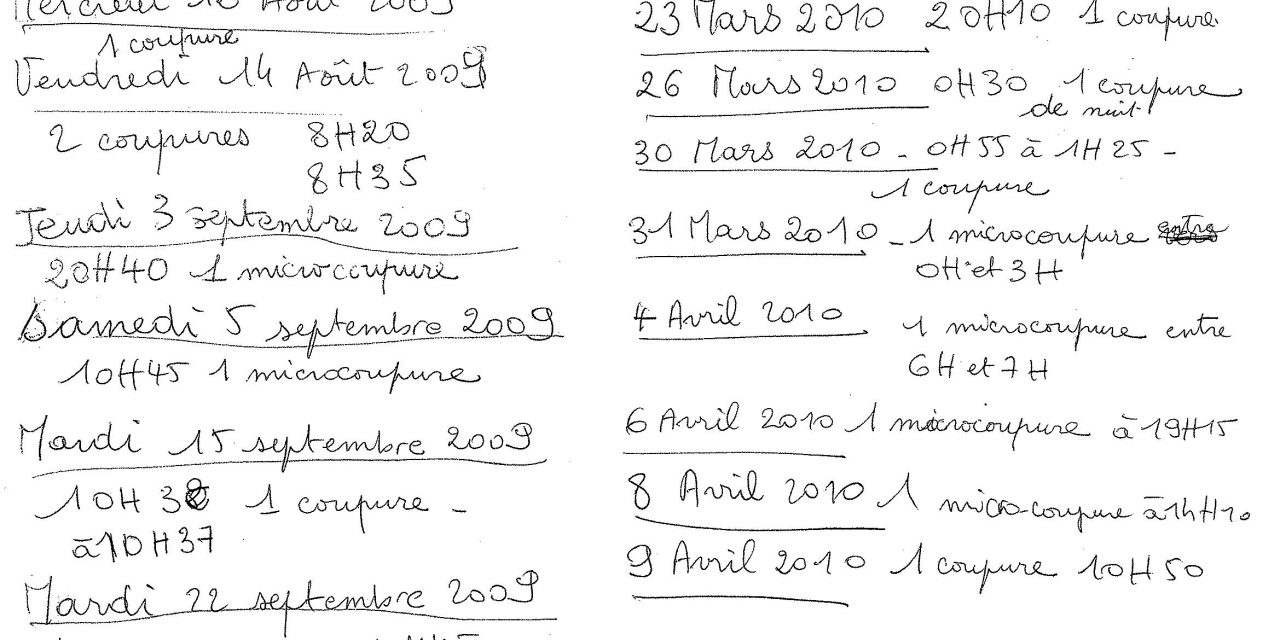 Mercredi 12 Août 2009
1 coupure
Vendredi 14 Août 2009
2 coupures 8H20
8H35
Jeudi 3 septembre 2009
20H40 1 microcoupure
Samedi 5 septembre 2009
10H45 1 microcoupure
Mardi 15 septembre 2009
10H 32 1 coupure -
à 10H37
Mardi 22 septembre 2009
23 Mars 2010 20H10 1 coupure
26 Mars 2010 0H30 1 coupure
de nuit
30 Mars 2010 - 0H55 à 1H25 -
1 coupure
31 Mars 2010 - 1 microcoupure entre
0H et 3H
4 Avril 2010 1 microcoupure entre
6H et 7H
6 Avril 2010 1 microcoupure à 19H15
8 Avril 2010 1 micro-coupure à 14H10
9 Avril 2010 1 coupure 10H50